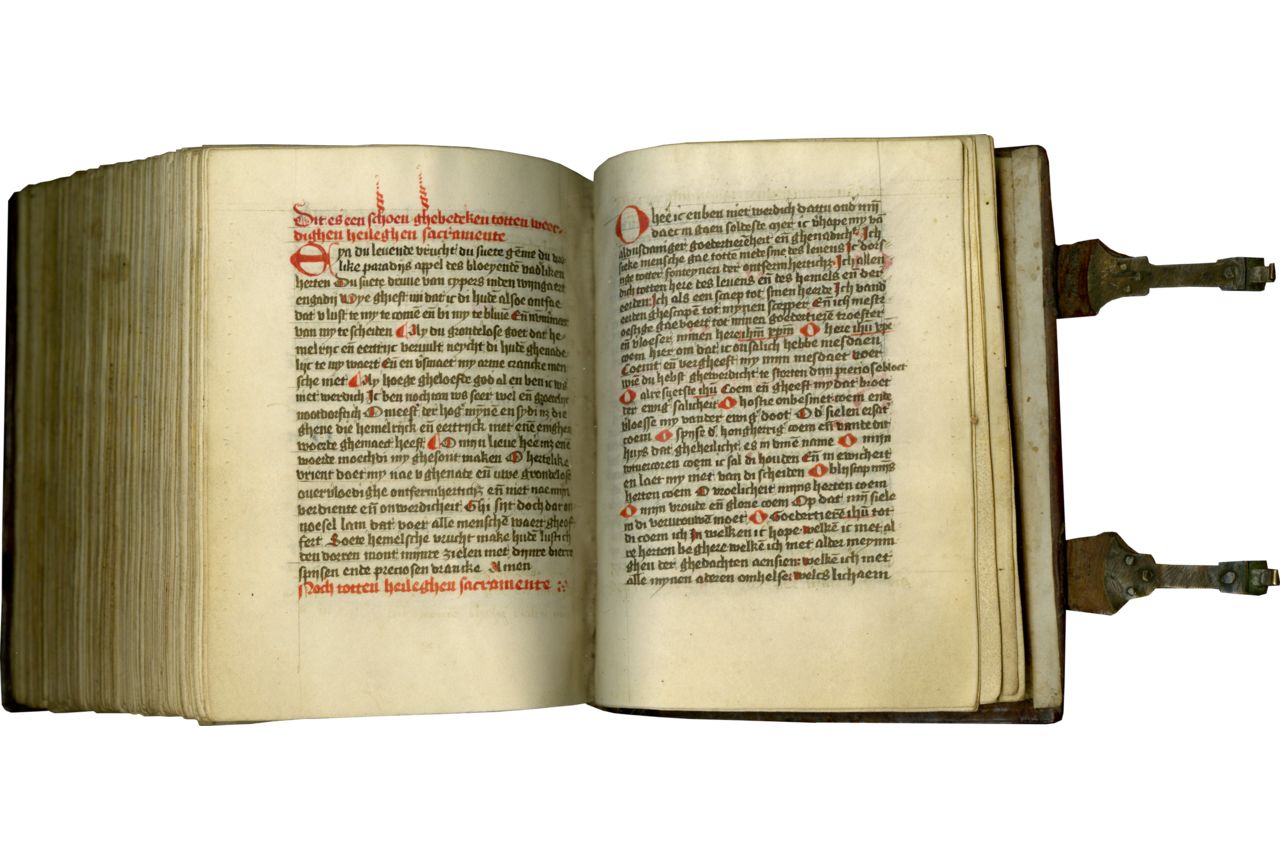 Dit es een schoen ghebedeken totten weer-
dighen heileghen sacramente
du leuende vrucht du suete
like paradijs appel des bloeyende
herten Du suete druue van cypers inden wijngaert
engadij ghieft mi dat ic di hude alsoe ontfae
dat v lust te my te comē en bi my te bliuē Eñ nummer
van my te scheiden My du grondelose goet dat he-
melrijc eñ eertrijc veruult neycht di hude ghenade-
lijc te my waert Eñ en vsmaet my arme crancke men
sche niet Ay hoege gheloefde god al en ben ic
niet werdich Ic ben nochtan ws seer wel eñ groetelic
nootdorftich O meest der hog mȳne en sydi nz die
ghene die hemelrijc eñ eertrijck met enē
woerde ghemaect heeft O mijn lieue hee mz enē
woerde moechdi my ghesont maken O hertelike
vrient doet my nae v ghenade eñ uwe grondelose
ouervloedighe ontfermherticz eñ niet nae mijn
verdiente eñ onwerdicheit Ghi sijt doch dat on
noesel lam dat voer alle menschē waert gheof
fert Soete hemelsche vrucht make hude lustich
den dorren mont mijnre zielen met dijnre
spijsen ende preciosen drancke Amen
Noch totten heileghen sacramente
O hee ic en ben niet werdich dattu ond mijn
daec in gaen soldeste mer ic vhape my vā
aldusdaniger goedertierēheit eñ ghenadich Ich
sieke mensche gae totte medesine des leuens Ic dors
tige totter fonteynen der ontfermherticz Ich allen
dich totten here des leuens eñ des hemels eñ der
eerden Ich als een scaep tot sinen heerde Ich vand
eerden ghescapē tot mynen scepper Eñ ich meste
oestige gae voert tot minen goedertierē troester
eñ vloeser minen here ihm xpm O here ihu xpe
coem hier om dat ic onsalich hebbe misdaen
Coemt eñ vergheeft my mijn mesdaet voer
wie du hebst ghewerdicht te storten dijn preciose bloet
O alre sueetste ihu Coem eñ gheeft my dat broet
der ewig salicheit O hostie onbesmet coem ende
vloesse my vander ewig doot O d sielen ersat
coem O spijse d hongherrig coem eñ vande dit
huys dat gheheilicht es in dinē name O mijn
wtuercoren coem ic sal di houden Eñ in ewicheit
en laet my niet van di scheiden O blijscap mijs
herten coem O vroelicheit mijns herten coem
O mijn vroude eñ glorie coem Op dat mij siele
in di verurouwē moet O Goedertierē ihu tot
di coem ich In welken ic hope welkē ic met al
re herten beghere welkē ich met alder meynin
ghen der ghedachten aensien welkē ich met
alle mynen aderen omhelse welcs lichaem